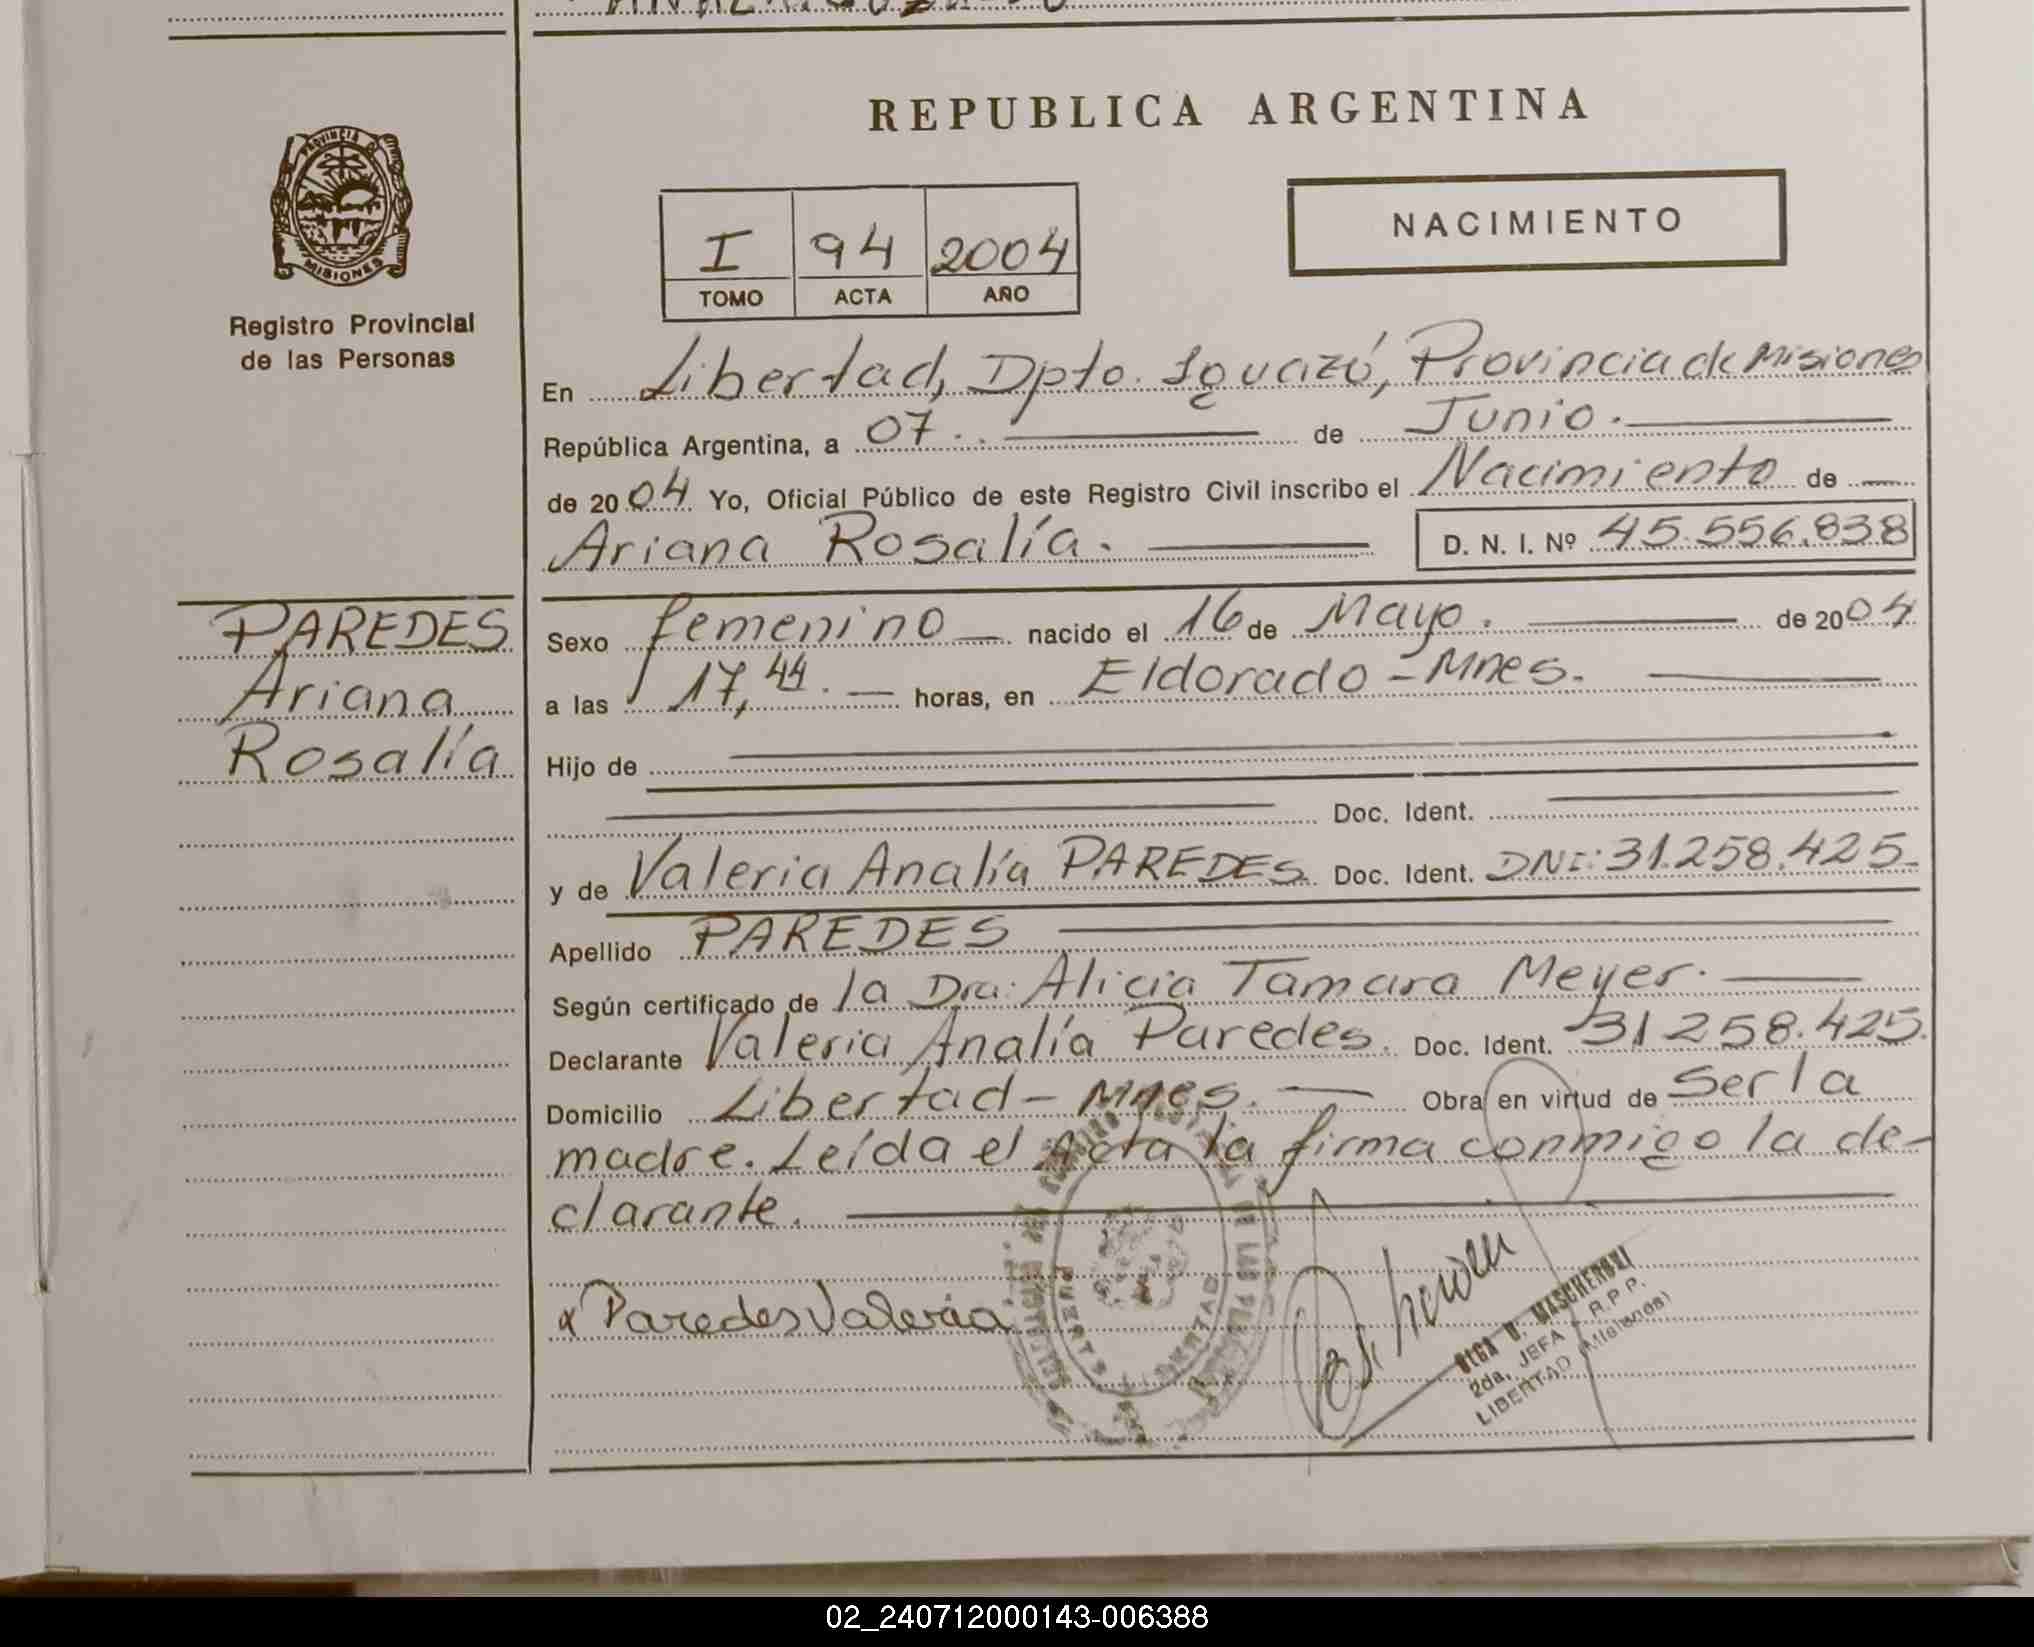 REPUBLICA ARGENTINA
PROVINCIA DE
MISIONES
Registro Provincial
de las Personas
I 94 2004
TOMO ACTA AÑO
NACIMIENTO
En Libertad, Dpto. Iguazú, Provincia de Misiones
República Argentina, a 07.. de Junio.
de 2004 Yo, Oficial Público de este Registro Civil inscribo el Nacimiento de
Ariana Rosalía. D. N. I. Nº 45.556.838
PAREDES
Ariana
Rosalía
Sexo femenino nacido el 16 de Mayo. de 2004
a las 17,44. horas, en Eldorado - Mnes.
Hijo de
Doc. Ident.
y de Valeria Analía PAREDES. Doc. Ident. DNI: 31.258.425.
Apellido PAREDES
Según certificado de la Dra. Alicia Tamara Meyer.
Declarante Valeria Analía Paredes. Doc. Ident. 31 258.425.
Domicilio Libertad - Mnes. Obra en virtud de ser la
madre. Leída el Acta la firma conmigo la de-
clarante.
x Paredes Valeria
PUERTO LIBERTAD
OLGA D. MASCHERONI
2da. JEFA - R.P.P.
LIBERTAD (Misiones)
02_240712000143-006388